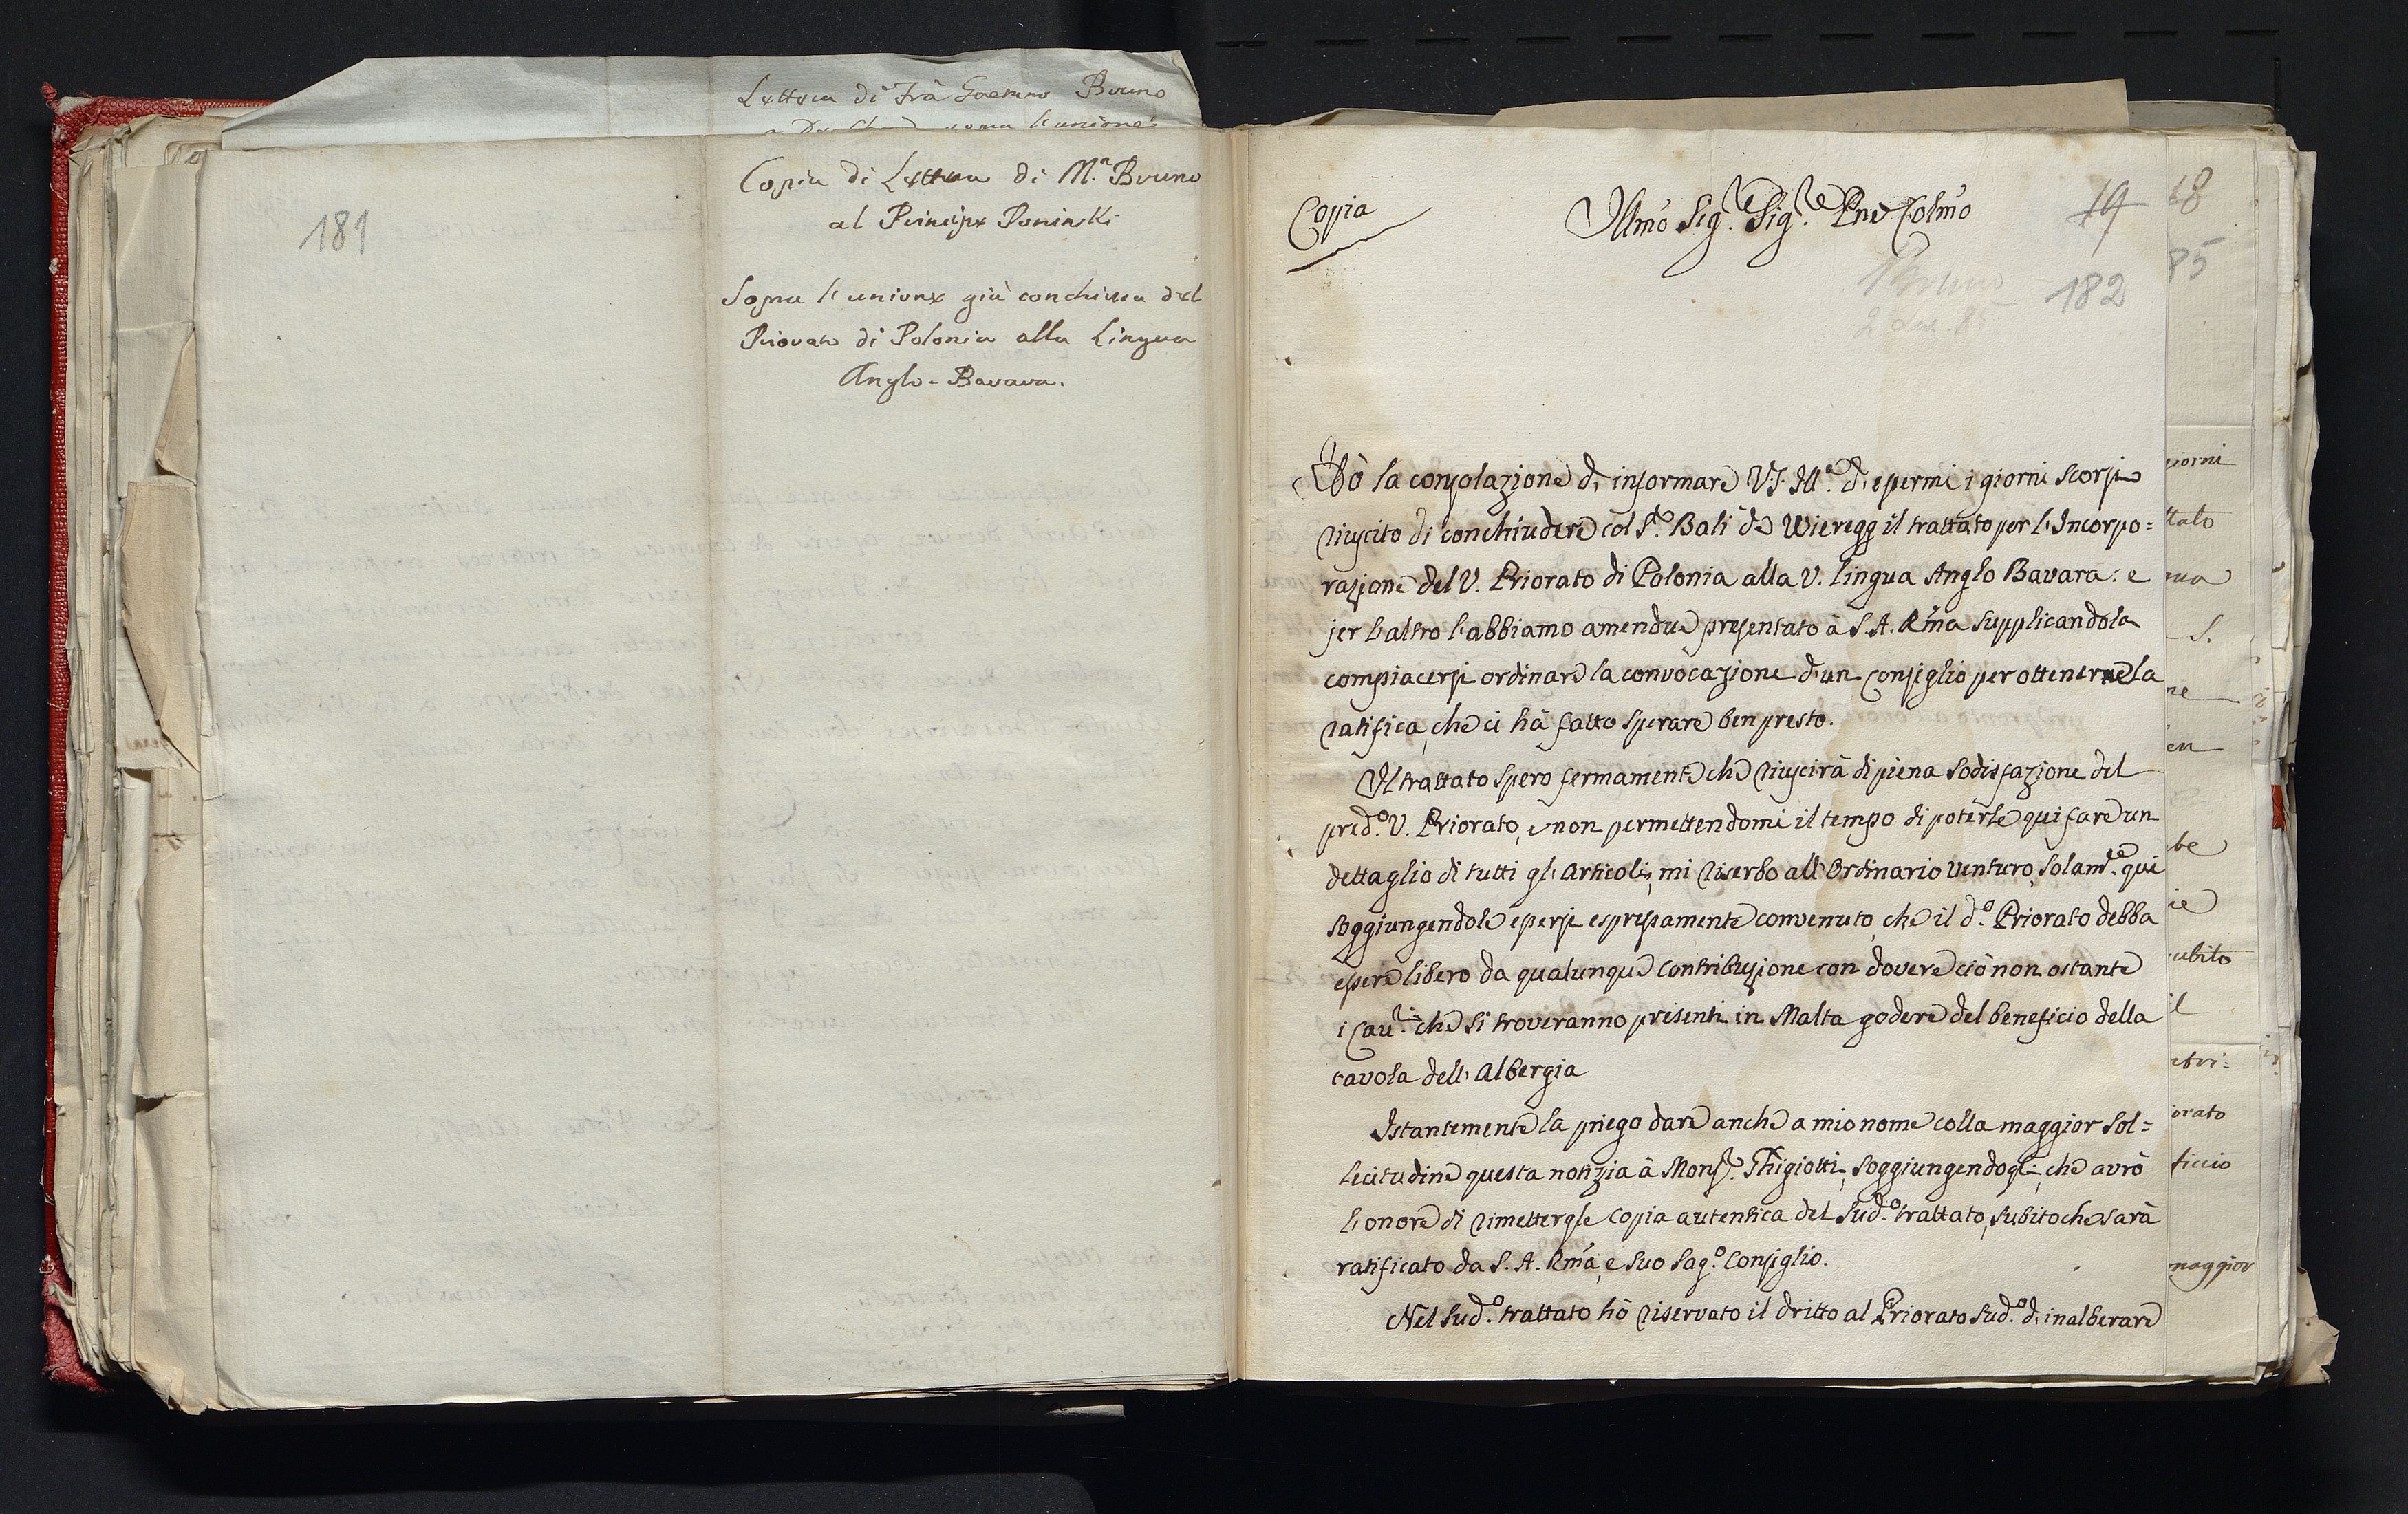 Lettera di Frà Gaetano Bruno
l'unione
Copia di Lettera di M.r Bruno
al Principe Poninski
Sopra l'unione già conchiusa del
Priorato di Polonia alla Lingua
Anglo-Bavara.
181
Copia
Illmo Sig.r Sig.r Pne Colmo
19
182
68
85
Hò la consolazione di informare V.S. Ill.a d'essermi i giorni scorsi
riuscito di conchiudere col S.r Balì de Wieregg il trattato per l'Incorpo=
razione del V. Priorato di Polonia alla V. Lingua Anglo Bavara: e
jer l'altro l'abbiamo amendue presentato à S.A. Rma supplicandola
compiacersi ordinare la convocazione d'un Consiglio per ottenerne la
ratifica, che ci hà fatto sperare ben presto.
Il trattato spero fermamente che riuscirà di piena sodisfazione del
pred.o V. Priorato, e non permettendomi il tempo di poterle qui fare un
dettaglio di tutti gli Articoli, mi riserbo all'Ordinario venturo, solam.te qui
soggiungendole essersi espressamente convenuto, che il d.o Priorato debba
essere libero da qualunque contribuzione con dovere ciò non ostante
i Cav.ri che si troveranno presenti in Malta godere del beneficio della
tavola dell'Albergia
Istantemente la priego dare anche a mio nome colla maggior sol=
lecitudine questa notizia à Mons.r Ghigiotti, soggiungendogli, che avrò
l'onore di rimettergle copia autentica del sud.o trattato, subito che sarà
ratificato da S.A. Rma, e suo Sag.o Consiglio.
Nel sud.o trattato hò riservato il dritto al Priorato sud.o di inalberare
iorni
ttato
S.
ne
en
be
ie
ubito
il
orato
ficcio
maggior